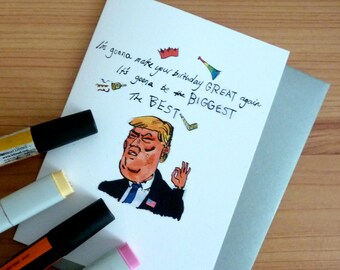 I'm gonna make your birthday GREAT again
It's gonna be the BIGGEST
The BEST